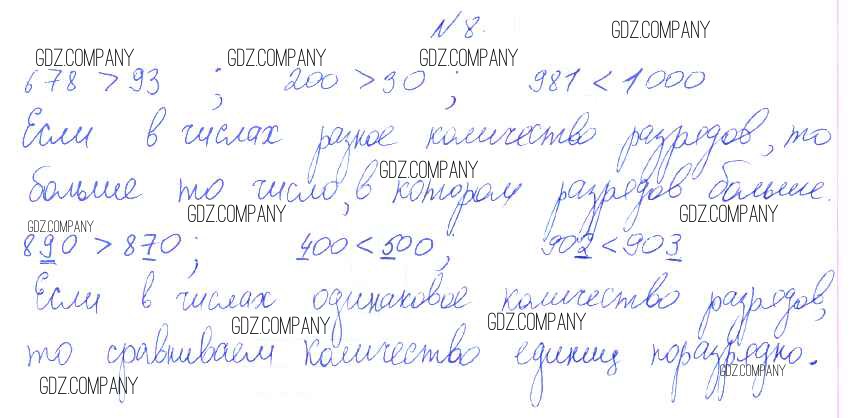 N 8.
GDZ.COMPANY
GDZ.COMPANY GDZ.COMPANY GDZ.COMPANY
678 > 93 ; 200 > 30 ; 981 < 1000
Если в числах разное количество разрядов, то
GDZ.COMPANY
больше то число, в котором разрядов больше.
GDZ.COMPANY GDZ.COMPANY
GDZ.COMPANY
890 > 870 ; 400 < 500 ; 902 < 903
Если в числах одинаковое количество разрядов,
GDZ.COMPANY GDZ.COMPANY
то сравниваем количество единиц поразрядно.
GDZ.COMPANY
GDZ.COMPANY